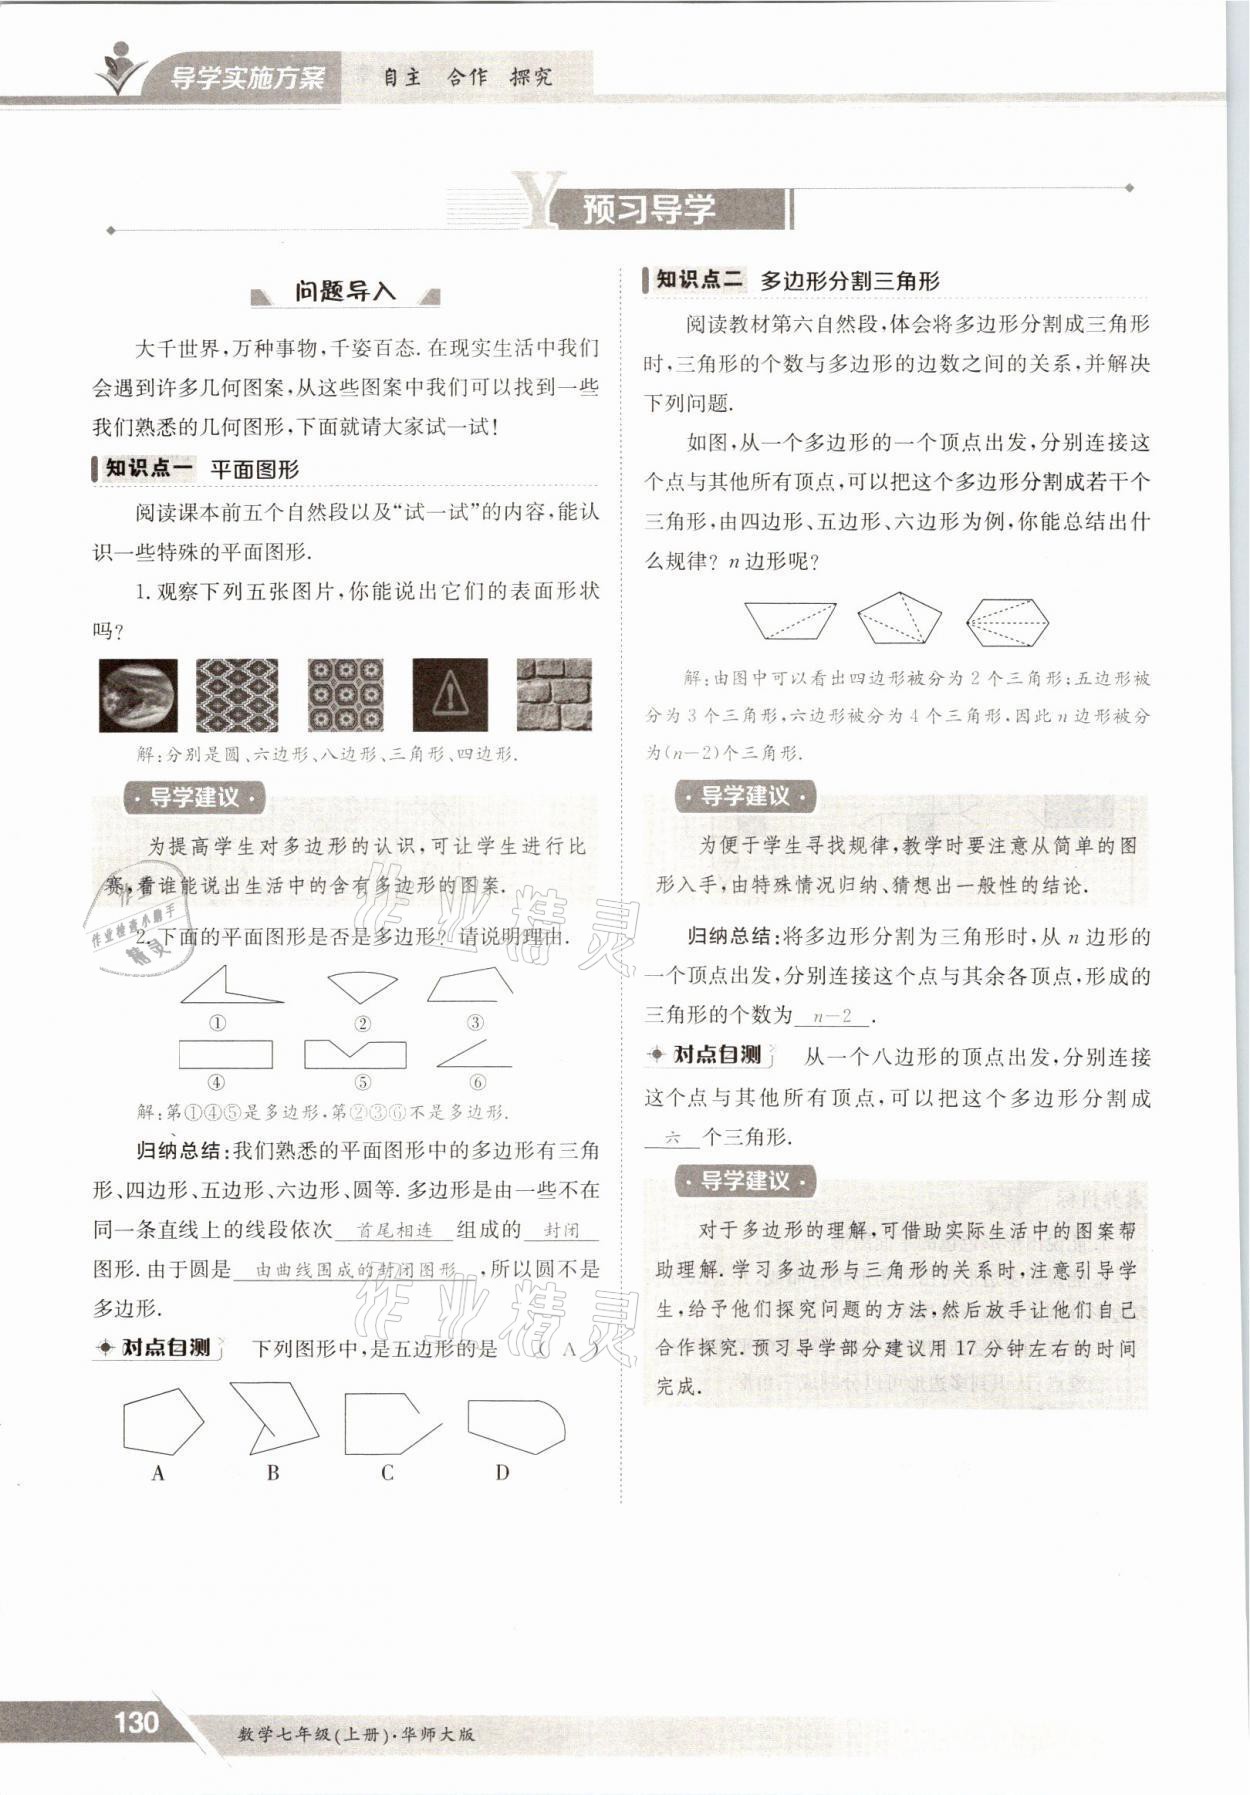 导学实施方案
自主 合作 探究
Y 预习导学
问题导入
大千世界,万种事物,千姿百态.在现实生活中我们
会遇到许多几何图案,从这些图案中我们可以找到一些
我们熟悉的几何图形,下面就请大家试一试!
知识点一 平面图形
阅读课本前五个自然段以及“试一试”的内容,能认
识一些特殊的平面图形.
1.观察下列五张图片,你能说出它们的表面形状
吗?
解:分别是圆、六边形、八边形、三角形、四边形.
·导学建议·
为提高学生对多边形的认识,可让学生进行比
赛,看谁能说出生活中的含有多边形的图案.
2.下面的平面图形是否是多边形?请说明理由.
① ② ③
④ ⑤ ⑥
解:第①④⑤是多边形,第②③⑥不是多边形.
归纳总结:我们熟悉的平面图形中的多边形有三角
形、四边形、五边形、六边形、圆等.多边形是由一些不在
同一条直线上的线段依次 首尾相连 组成的 封闭
图形.由于圆是 由曲线围成的封闭图形 ,所以圆不是
多边形.
对点自测 下列图形中,是五边形的是 ( A )
A B C D
知识点二 多边形分割三角形
阅读教材第六自然段,体会将多边形分割成三角形
时,三角形的个数与多边形的边数之间的关系,并解决
下列问题.
如图,从一个多边形的一个顶点出发,分别连接这
个点与其他所有顶点,可以把这个多边形分割成若干个
三角形,由四边形、五边形、六边形为例,你能总结出什
么规律? n边形呢?
解:由图中可以看出四边形被分为2个三角形;五边形被
分为3个三角形,六边形被分为4个三角形.因此n边形被分
为(n-2)个三角形.
·导学建议·
为便于学生寻找规律,教学时要注意从简单的图
形入手,由特殊情况归纳、猜想出一般性的结论.
归纳总结:将多边形分割为三角形时,从n边形的
一个顶点出发,分别连接这个点与其余各顶点,形成的
三角形的个数为 n-2 .
对点自测 从一个八边形的顶点出发,分别连接
这个点与其他所有顶点,可以把这个多边形分割成
六 个三角形.
·导学建议·
对于多边形的理解,可借助实际生活中的图案帮
助理解.学习多边形与三角形的关系时,注意引导学
生,给予他们探究问题的方法,然后放手让他们自己
合作探究.预习导学部分建议用17分钟左右的时间
完成.
作业精灵
作业精灵
作业
作业检查小助手
精灵
130
数学七年级(上册)·华师大版